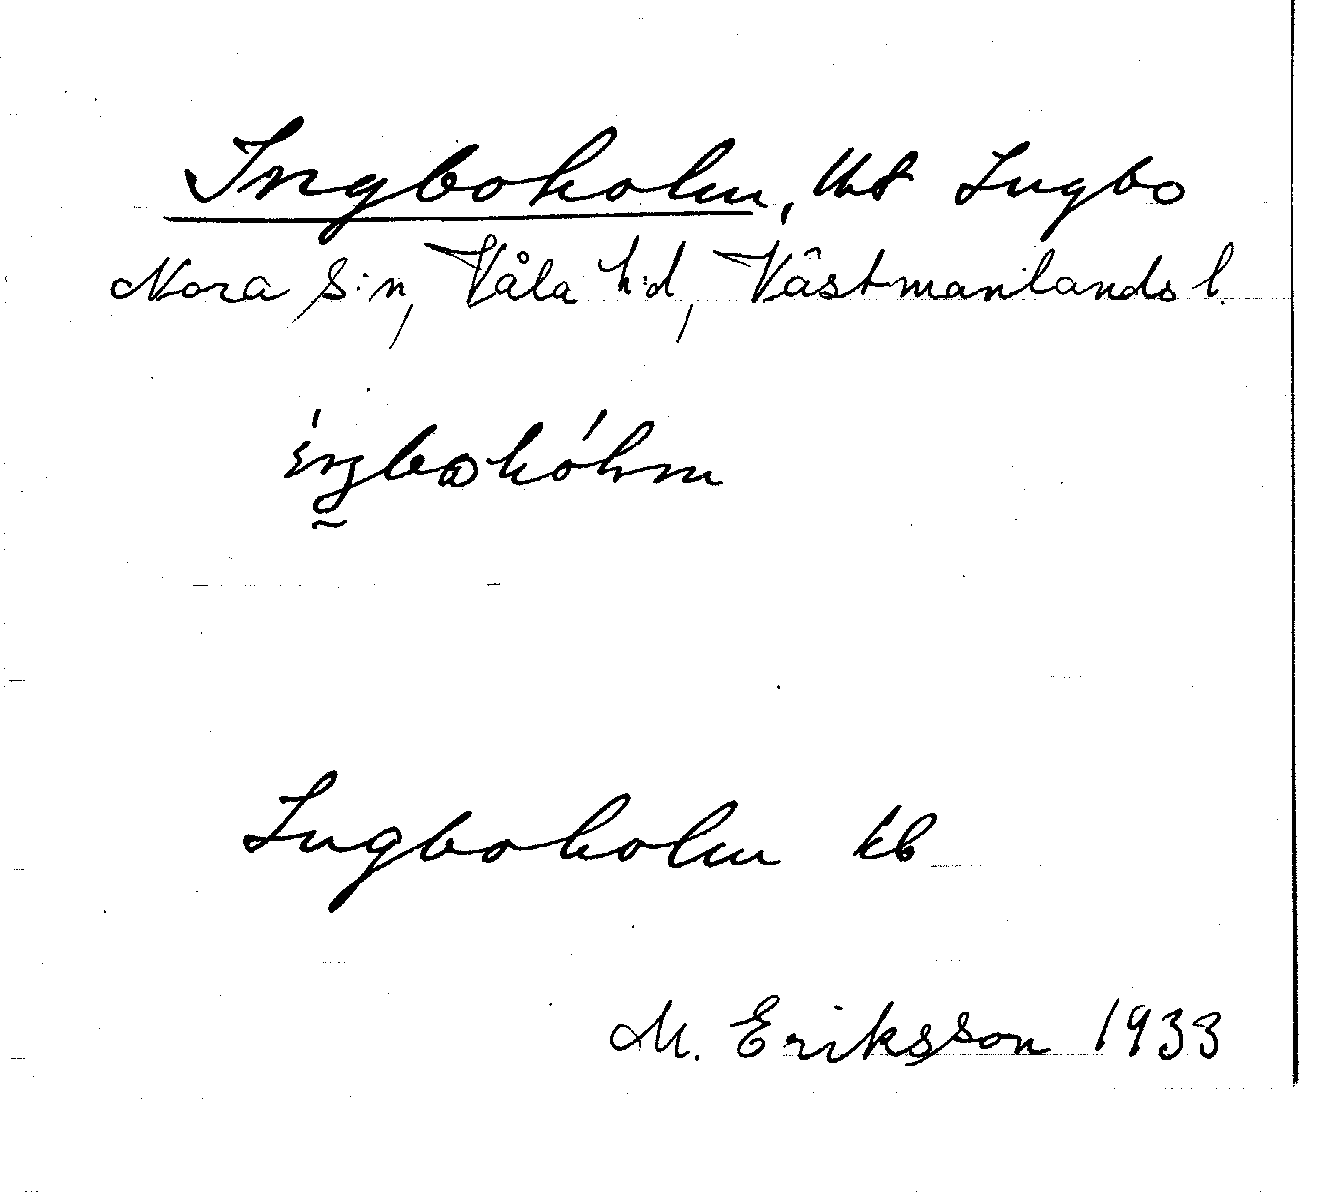 Ingboholm, Ingbo
Nora s:n, Våla h:d, Västmanlands l.
Ingboholm kb
M. Eriksson 1933